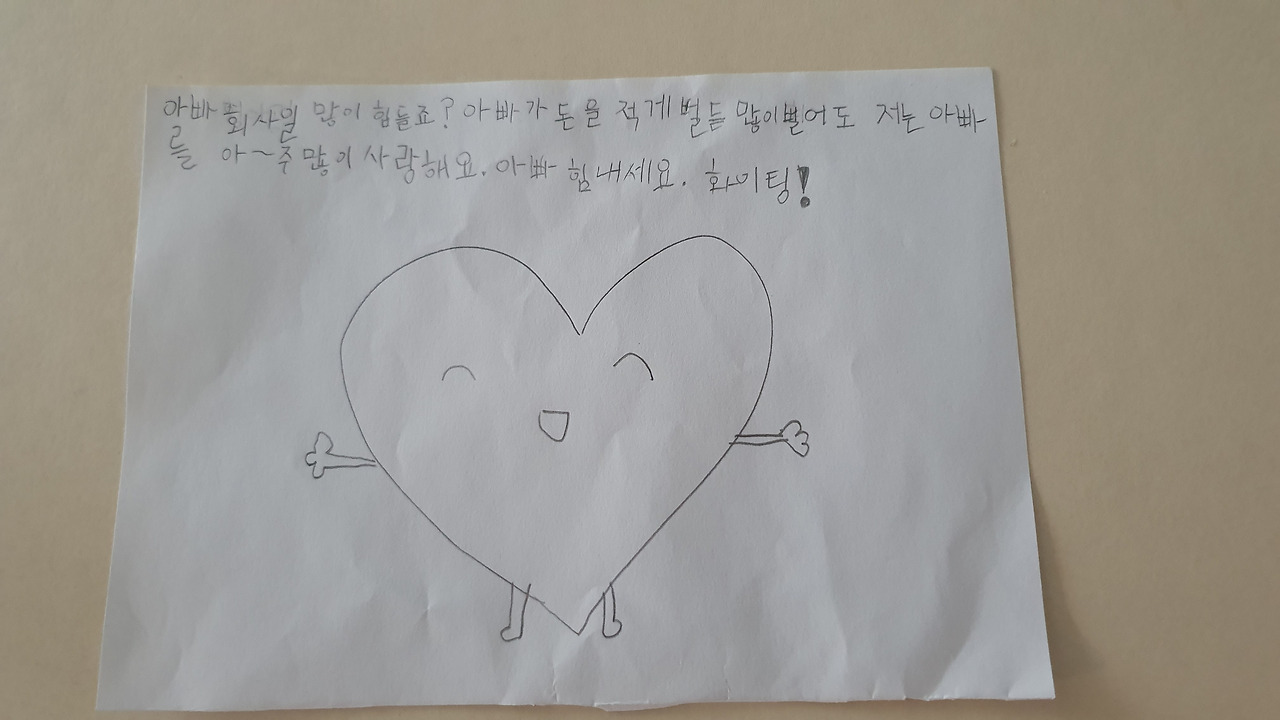 아빠 회사일 많이 힘들죠? 아빠가 돈을 적게벌든 많이벌어도 저는 아빠
를 아~주 많이 사랑해요. 아빠 힘내세요. 화이팅!